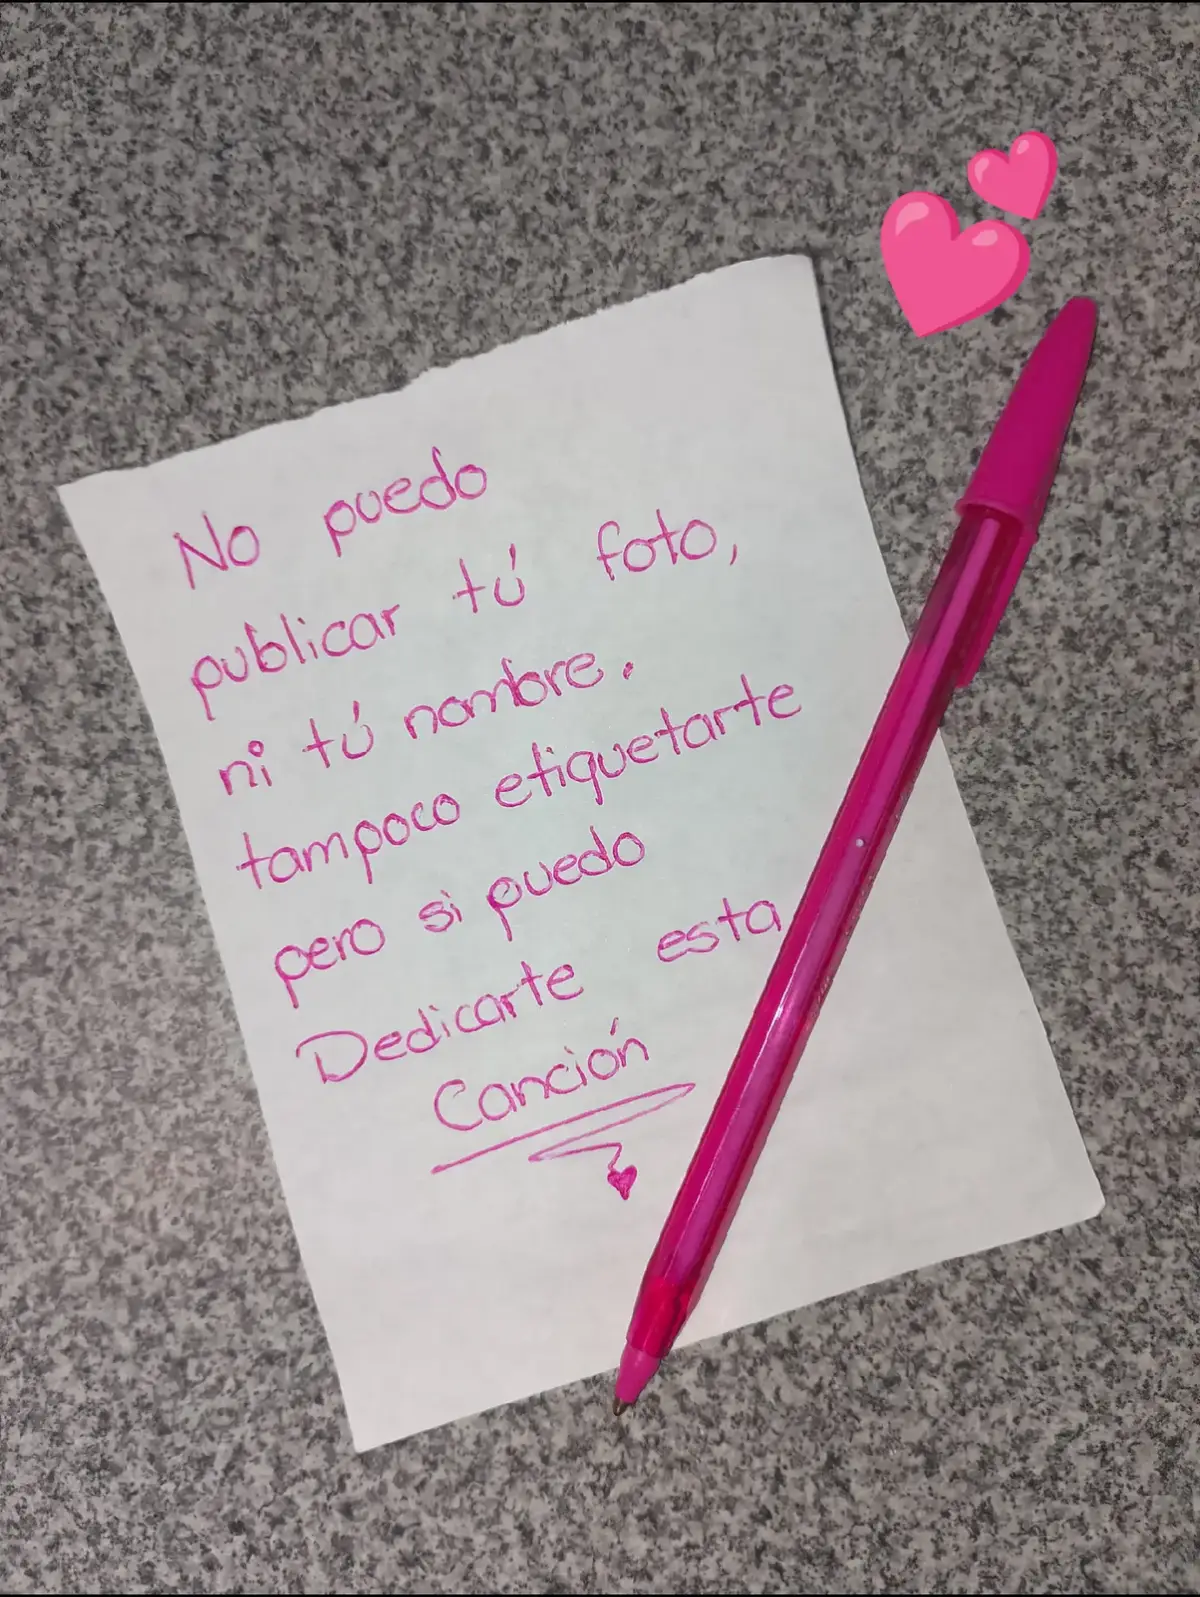 No puedo
publicar tú foto,
ni tú nombre.
tampoco etiquetarte
pero si puedo
Dedicarte esta
Canción